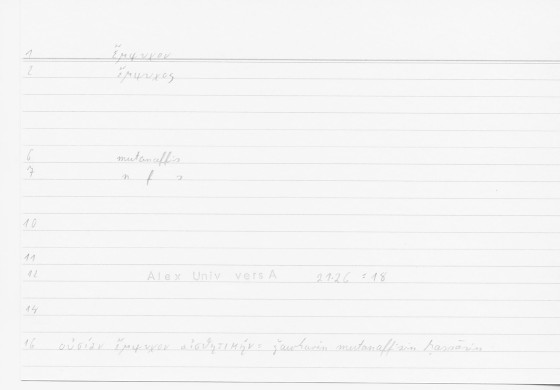 1 ἔμψυχον
2 ἔμψυχος
6 mutanaffis
7 n f s
10
11
13 Alex Univ versA 21.26 = 18
14
16 οὐσίαν ἔμψυχον αἰσθητικήν: ǧauharin mutanaffisin ḥassāsin